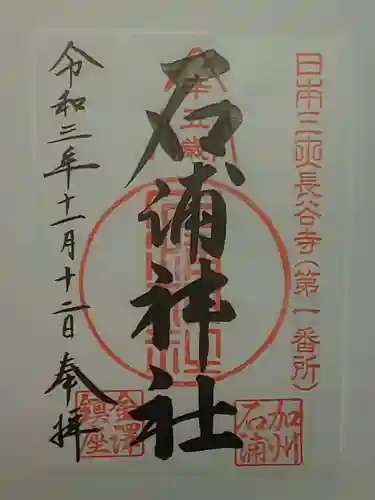 日本三所長谷寺(第一番所)
石浦神社
加州
石浦
令和三年十一月十二日 奉拝
金澤
鎮座